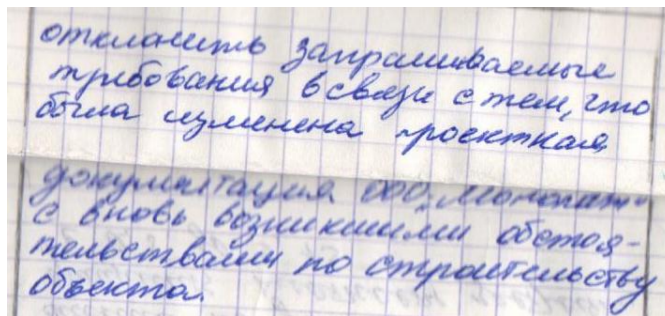 отклонить запрашиваемые
требования в связи с тем, что
была изменена проектная
документация ООО "Монолит"
с вновь возникшими обстоя-
тельствами по строительству
объекта.